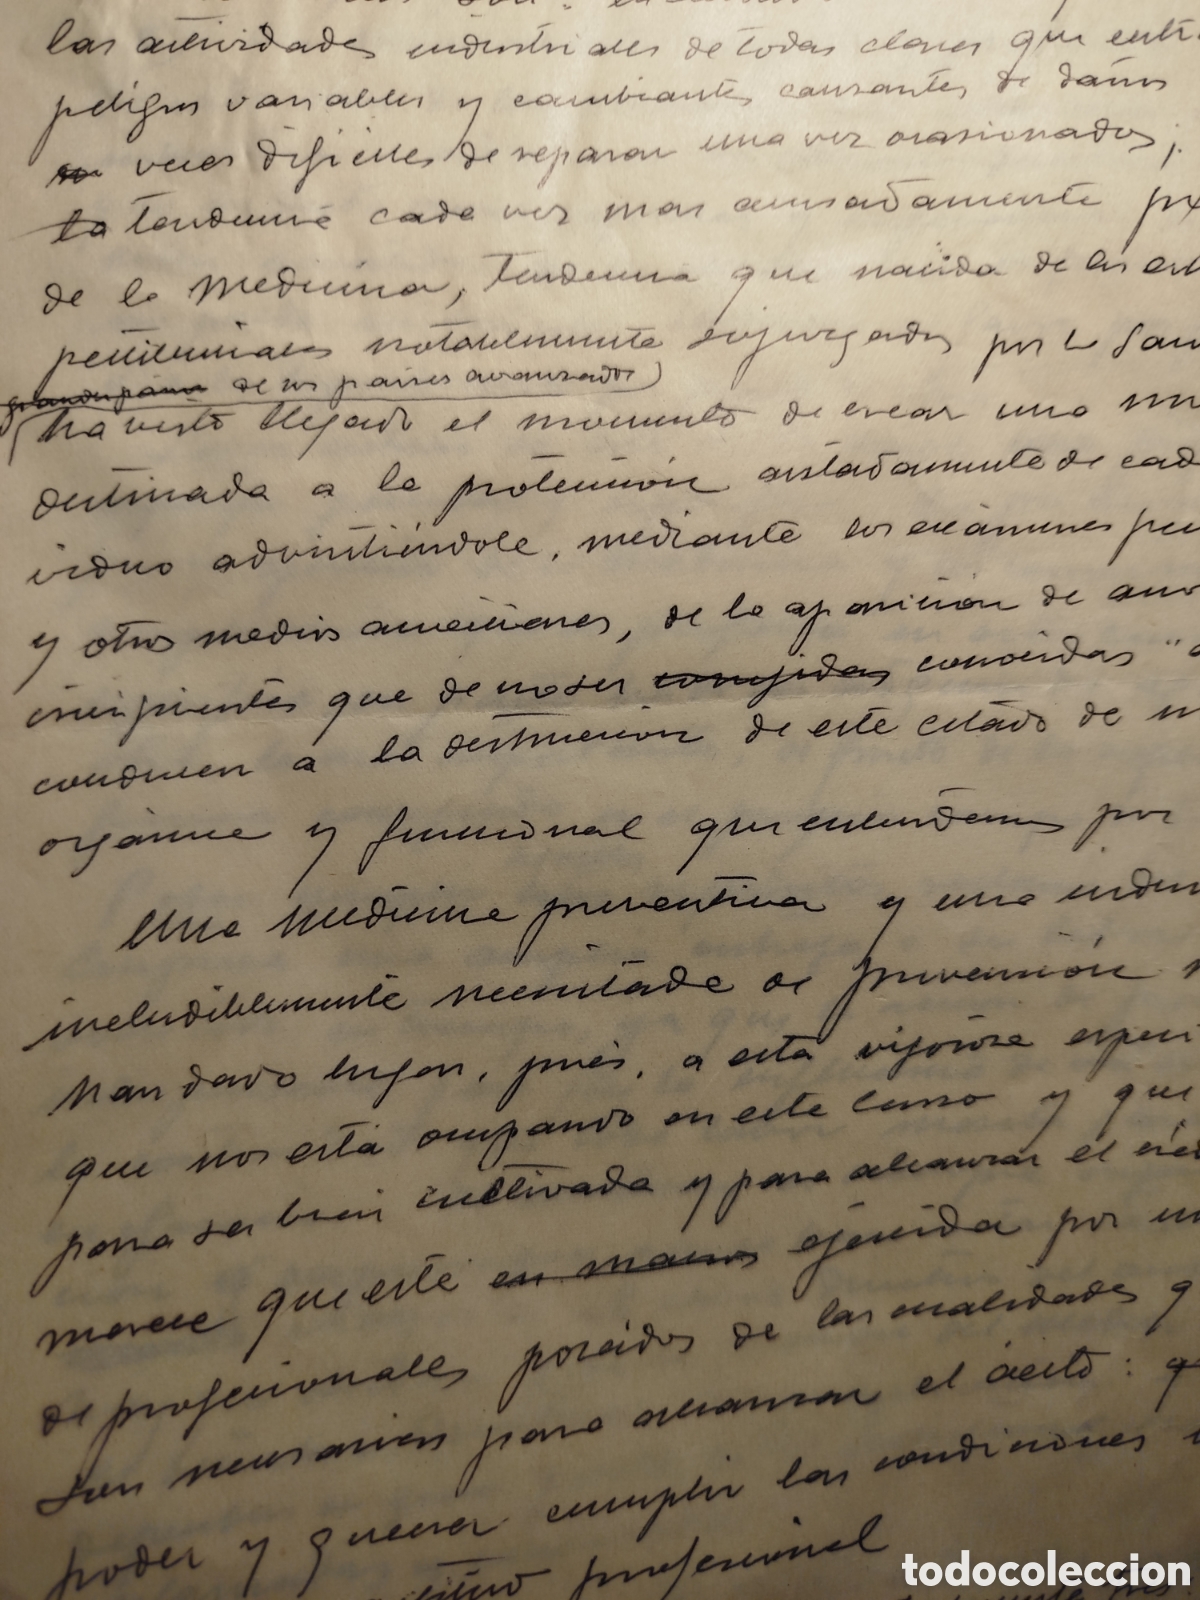 las actividades industriales de todas clases que
peligros variables y cambiantes causantes de daños
veces difíciles de reparar una vez ocasionados;
tendencia cada vez mas acusadamente
de la Medicina, tendencia que nacida de las
pestilenciales notablemente sojuzgadas por la
de los paises avanzados)
ha visto llegado el momento de crear una
destinada a la protección aisladamente de
advirtiéndole, mediante los exámenes
y otros medios, de la aparición de
incipientes que de no ser corregidas conocidas
conducen a la destrucción de este estado de
orgánico y funcional que entendemos por
Una medicina preventiva y una
ineludiblemente necesitada de prevención
han dado lugar, pues, a esta vigorosa
que nos está ocupando en este curso y que
para ser bien cultivada y para alcanzar el
merece que esté en manos ejercida por
de profesionales poseidos de las cualidades
son necesarias para alcanzar el éxito:
poder y querer cumplir las condiciones
profesional
todocoleccion